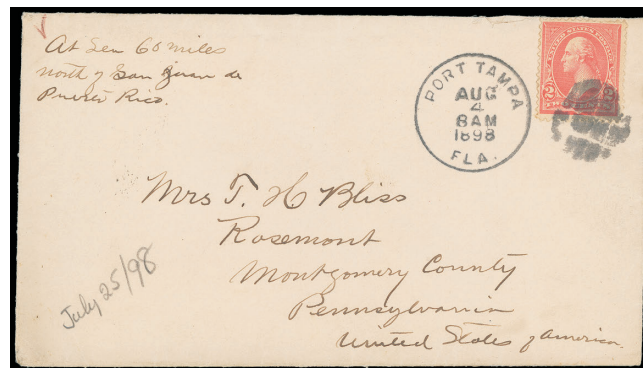 At Sea 60 miles
north of San Juan de
Puerto Rico.
PORT TAMPA
AUG
4
8AM
1898
FLA.
UNITED STATES POSTAGE
2
Mrs T. H Bliss
Rosemont
Montgomery County
Pennsylvania
United States of America.
July 25/98